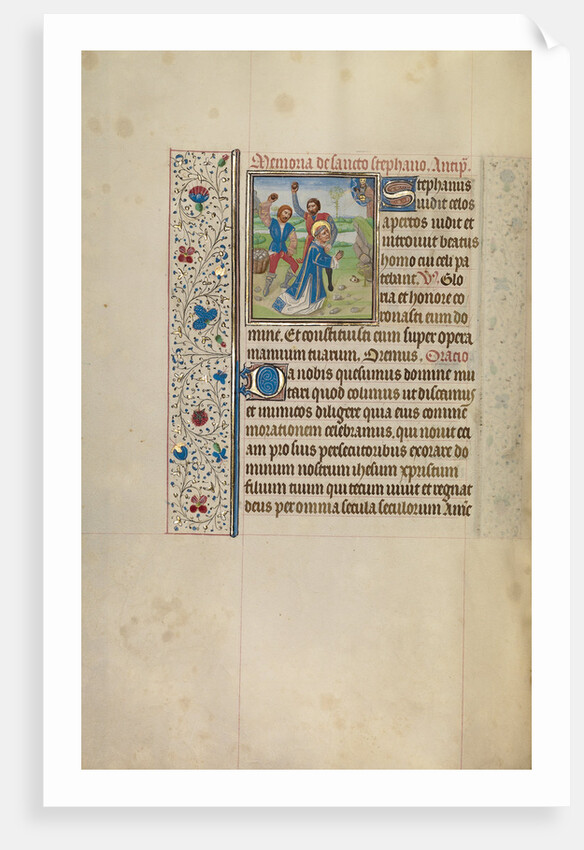 Memoria de sancto stephano. Antip̄.
Stephanus
uidit celos
apertos uidit et
introiuit beatus
homo cui celi pa
tebant. V. Glo
ria et honore co
ronasti eum do
mine. Et constituisti eum super opera
manuum tuarum. Oremus. Oracio
Da nobis quesumus domine imi
tari quod colimus ut discamus
et inimicos diligere quia eius comme
morationem celebramus, qui nouit eci
am pro suis persecutoribus exorare do
minum nostrum ihesum xpristum
filium tuum qui tecum uiuit et regnat
deus per omnia secula seculorum Ame